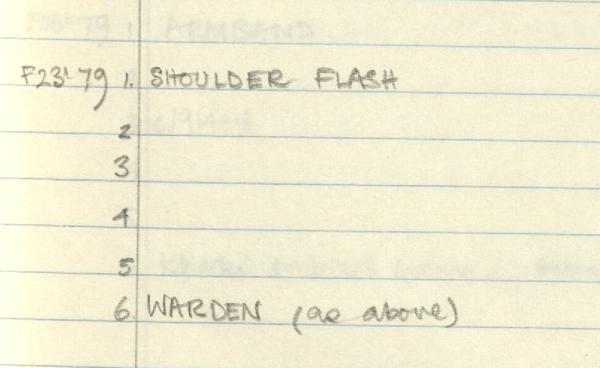 F23'79 1. SHOULDER FLASH
2
3
4
5
6. WARDEN (as above)